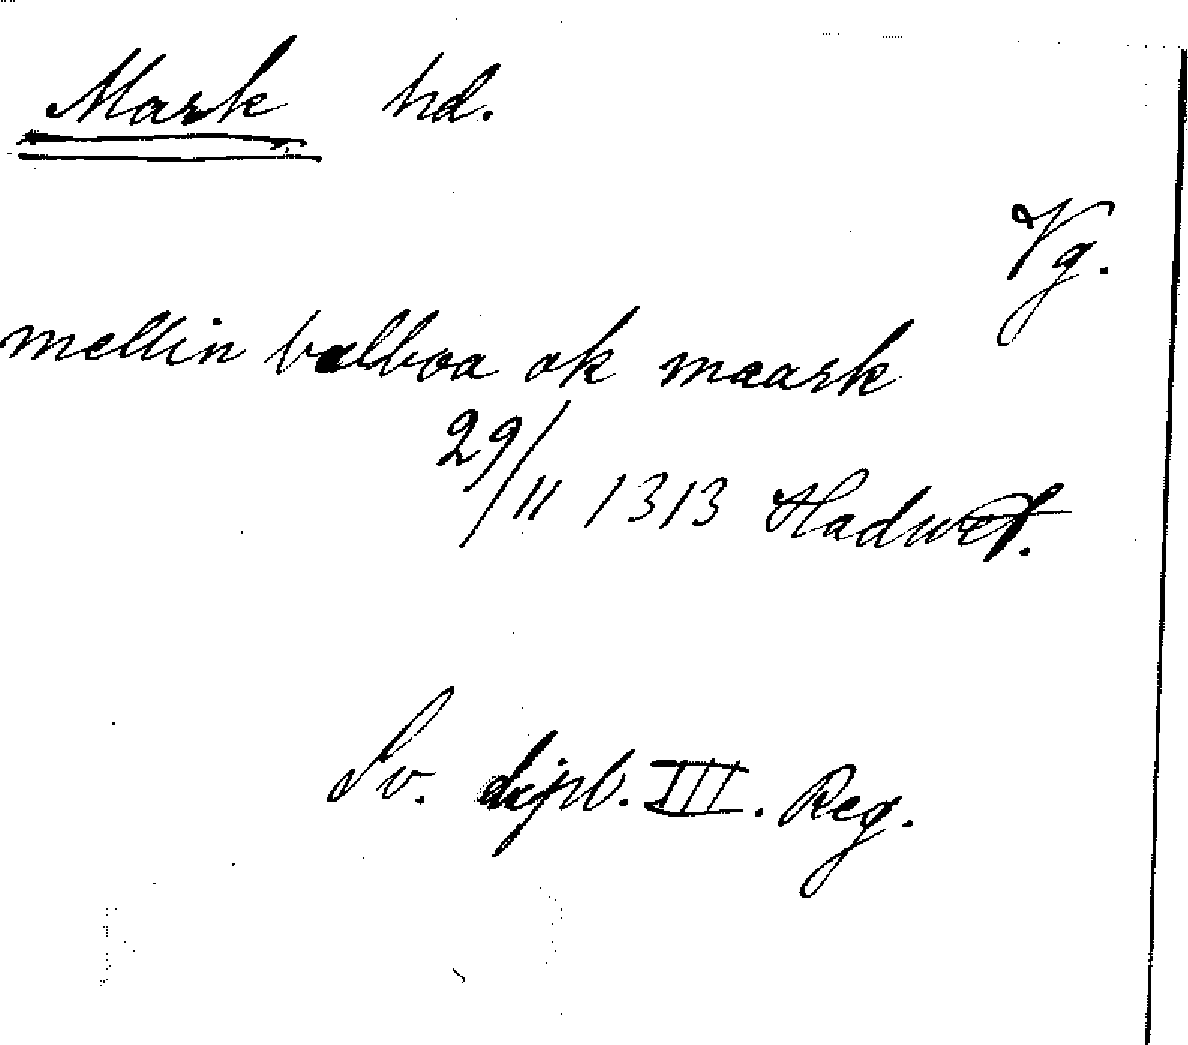 Mark hd.
Vg.
mellin balboa ok maark
29/11 1313
Sv. dipl. III. Reg.